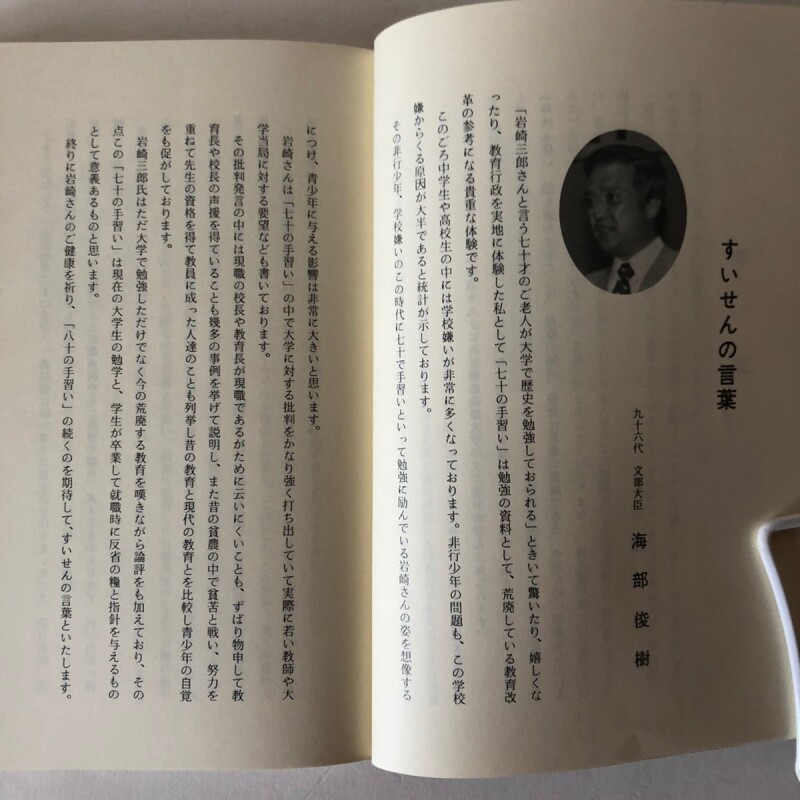 すいせんの言葉
九十六代　文部大臣　海部俊樹
「岩崎三郎さんと言う七十才のご老人が大学で歴史を勉強しておられる」ときいて驚いたり、嬉しくな
ったり、教育行政を実地に体験した私として「七十の手習い」は勉強の資料として、荒廃している教育改
革の参考になる貴重な体験です。
このごろ中学生や高校生の中には学校嫌いが非常に多くなっております。非行少年の問題も、この学校
嫌からくる原因が大半であると統計が示しております。
その非行少年、学校嫌いのこの時代に七十で手習いといって勉強に励んでいる岩崎さんの姿を想像する
につけ、青少年に与える影響は非常に大きいと思います。
岩崎さんは「七十の手習い」の中で大学に対する批判をかなり強く打ち出していて実際に若い教師や大
学当局に対する要望なども書いております。
その批判発言の中には現職の校長や教育長が現職であるがために云いにくいことも、ずばり物申して教
育長や校長の声援を得ていることも幾多の事例を挙げて説明し、また昔の貧農の中で貧苦と戦い、努力を
重ねて先生の資格を得て教員に成った人達のことも列挙し昔の教育と現代の教育とを比較し青少年の自覚
をも促がしております。
岩崎三郎氏はただ大学で勉強しただけでなく今の荒廃する教育を嘆きながら論評をも加えており、その
点この「七十の手習い」は現在の大学生の勉学と、学生が卒業して就職時に反省の糧と指針を与えるもの
として意義あるものと思います。
終りに岩崎さんのご健康を祈り、「八十の手習い」の続くのを期待して、すいせんの言葉といたします。